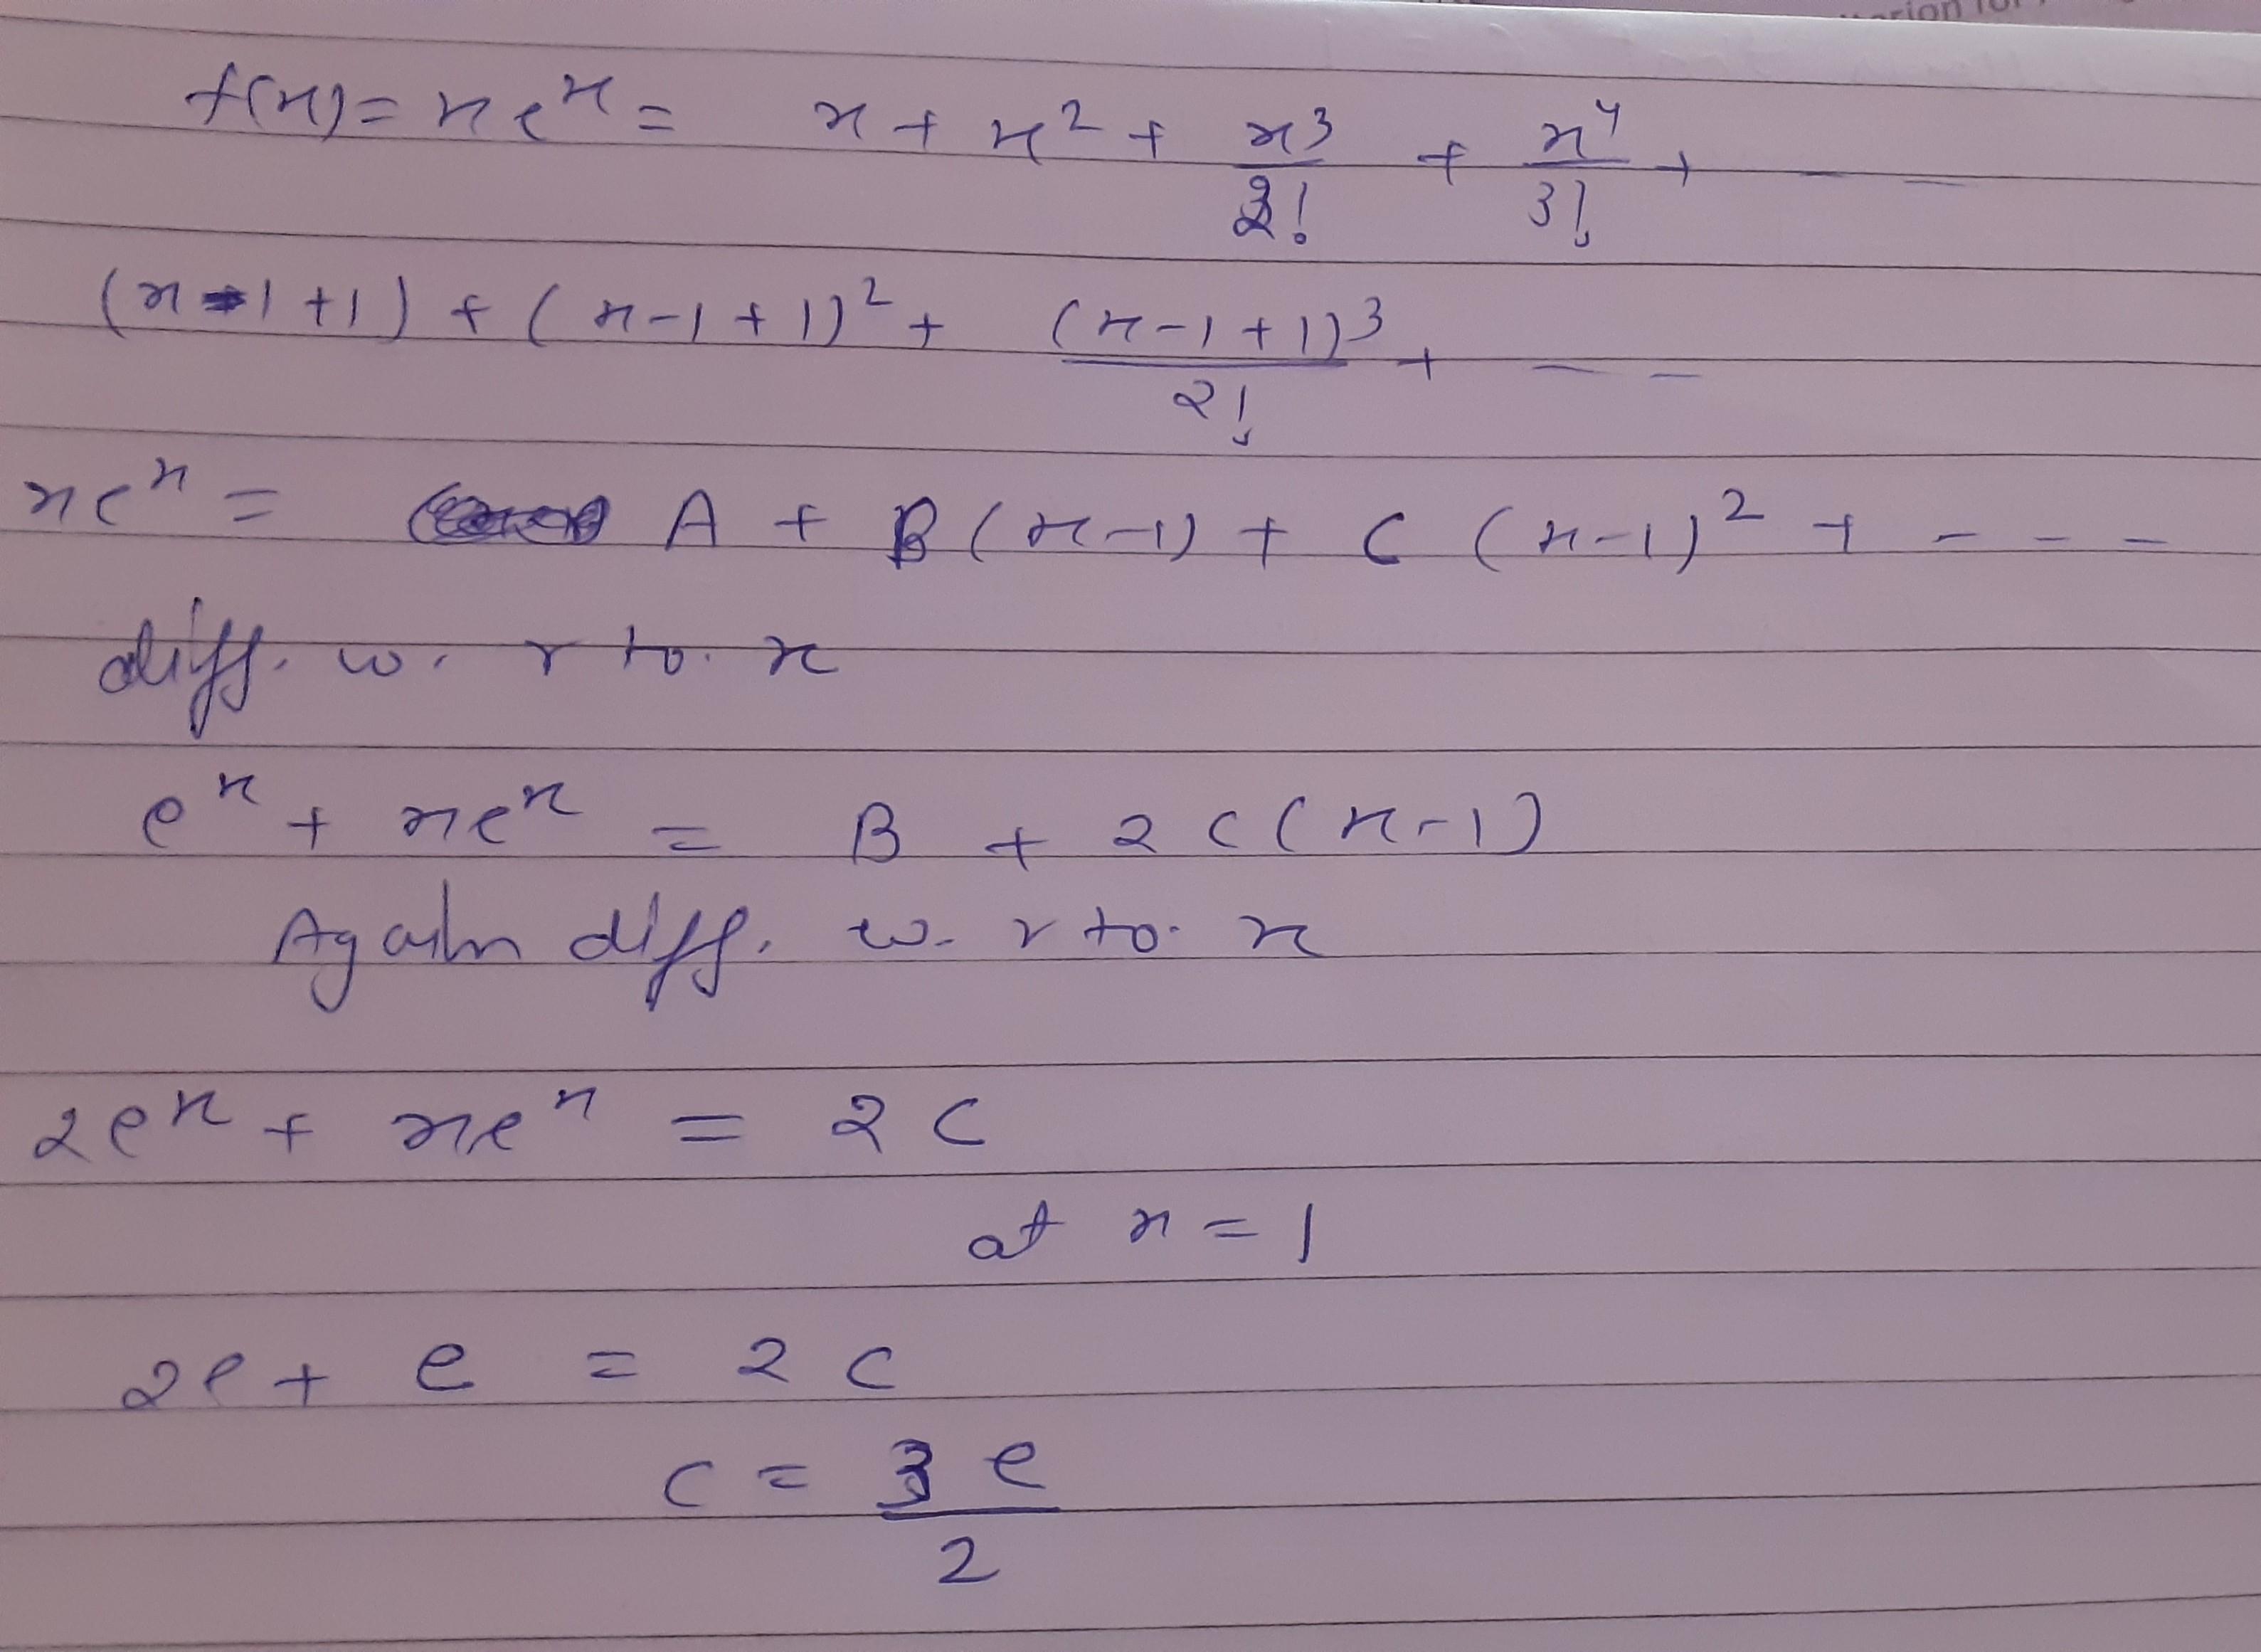 f(x) = xe^x = x + x^2 + x^3/2! + x^4/3! + - -
(x-1+1) + (x-1+1)^2 + (x-1+1)^3/2! + - -
xe^x = A + B(x-1) + C(x-1)^2 + - - -
diff. w. r to. x
e^x + xe^x = B + 2C(x-1)
Again diff. w. r to. x
2e^x + xe^x = 2C
at x = 1
2e + e = 2C
C = 3e/2